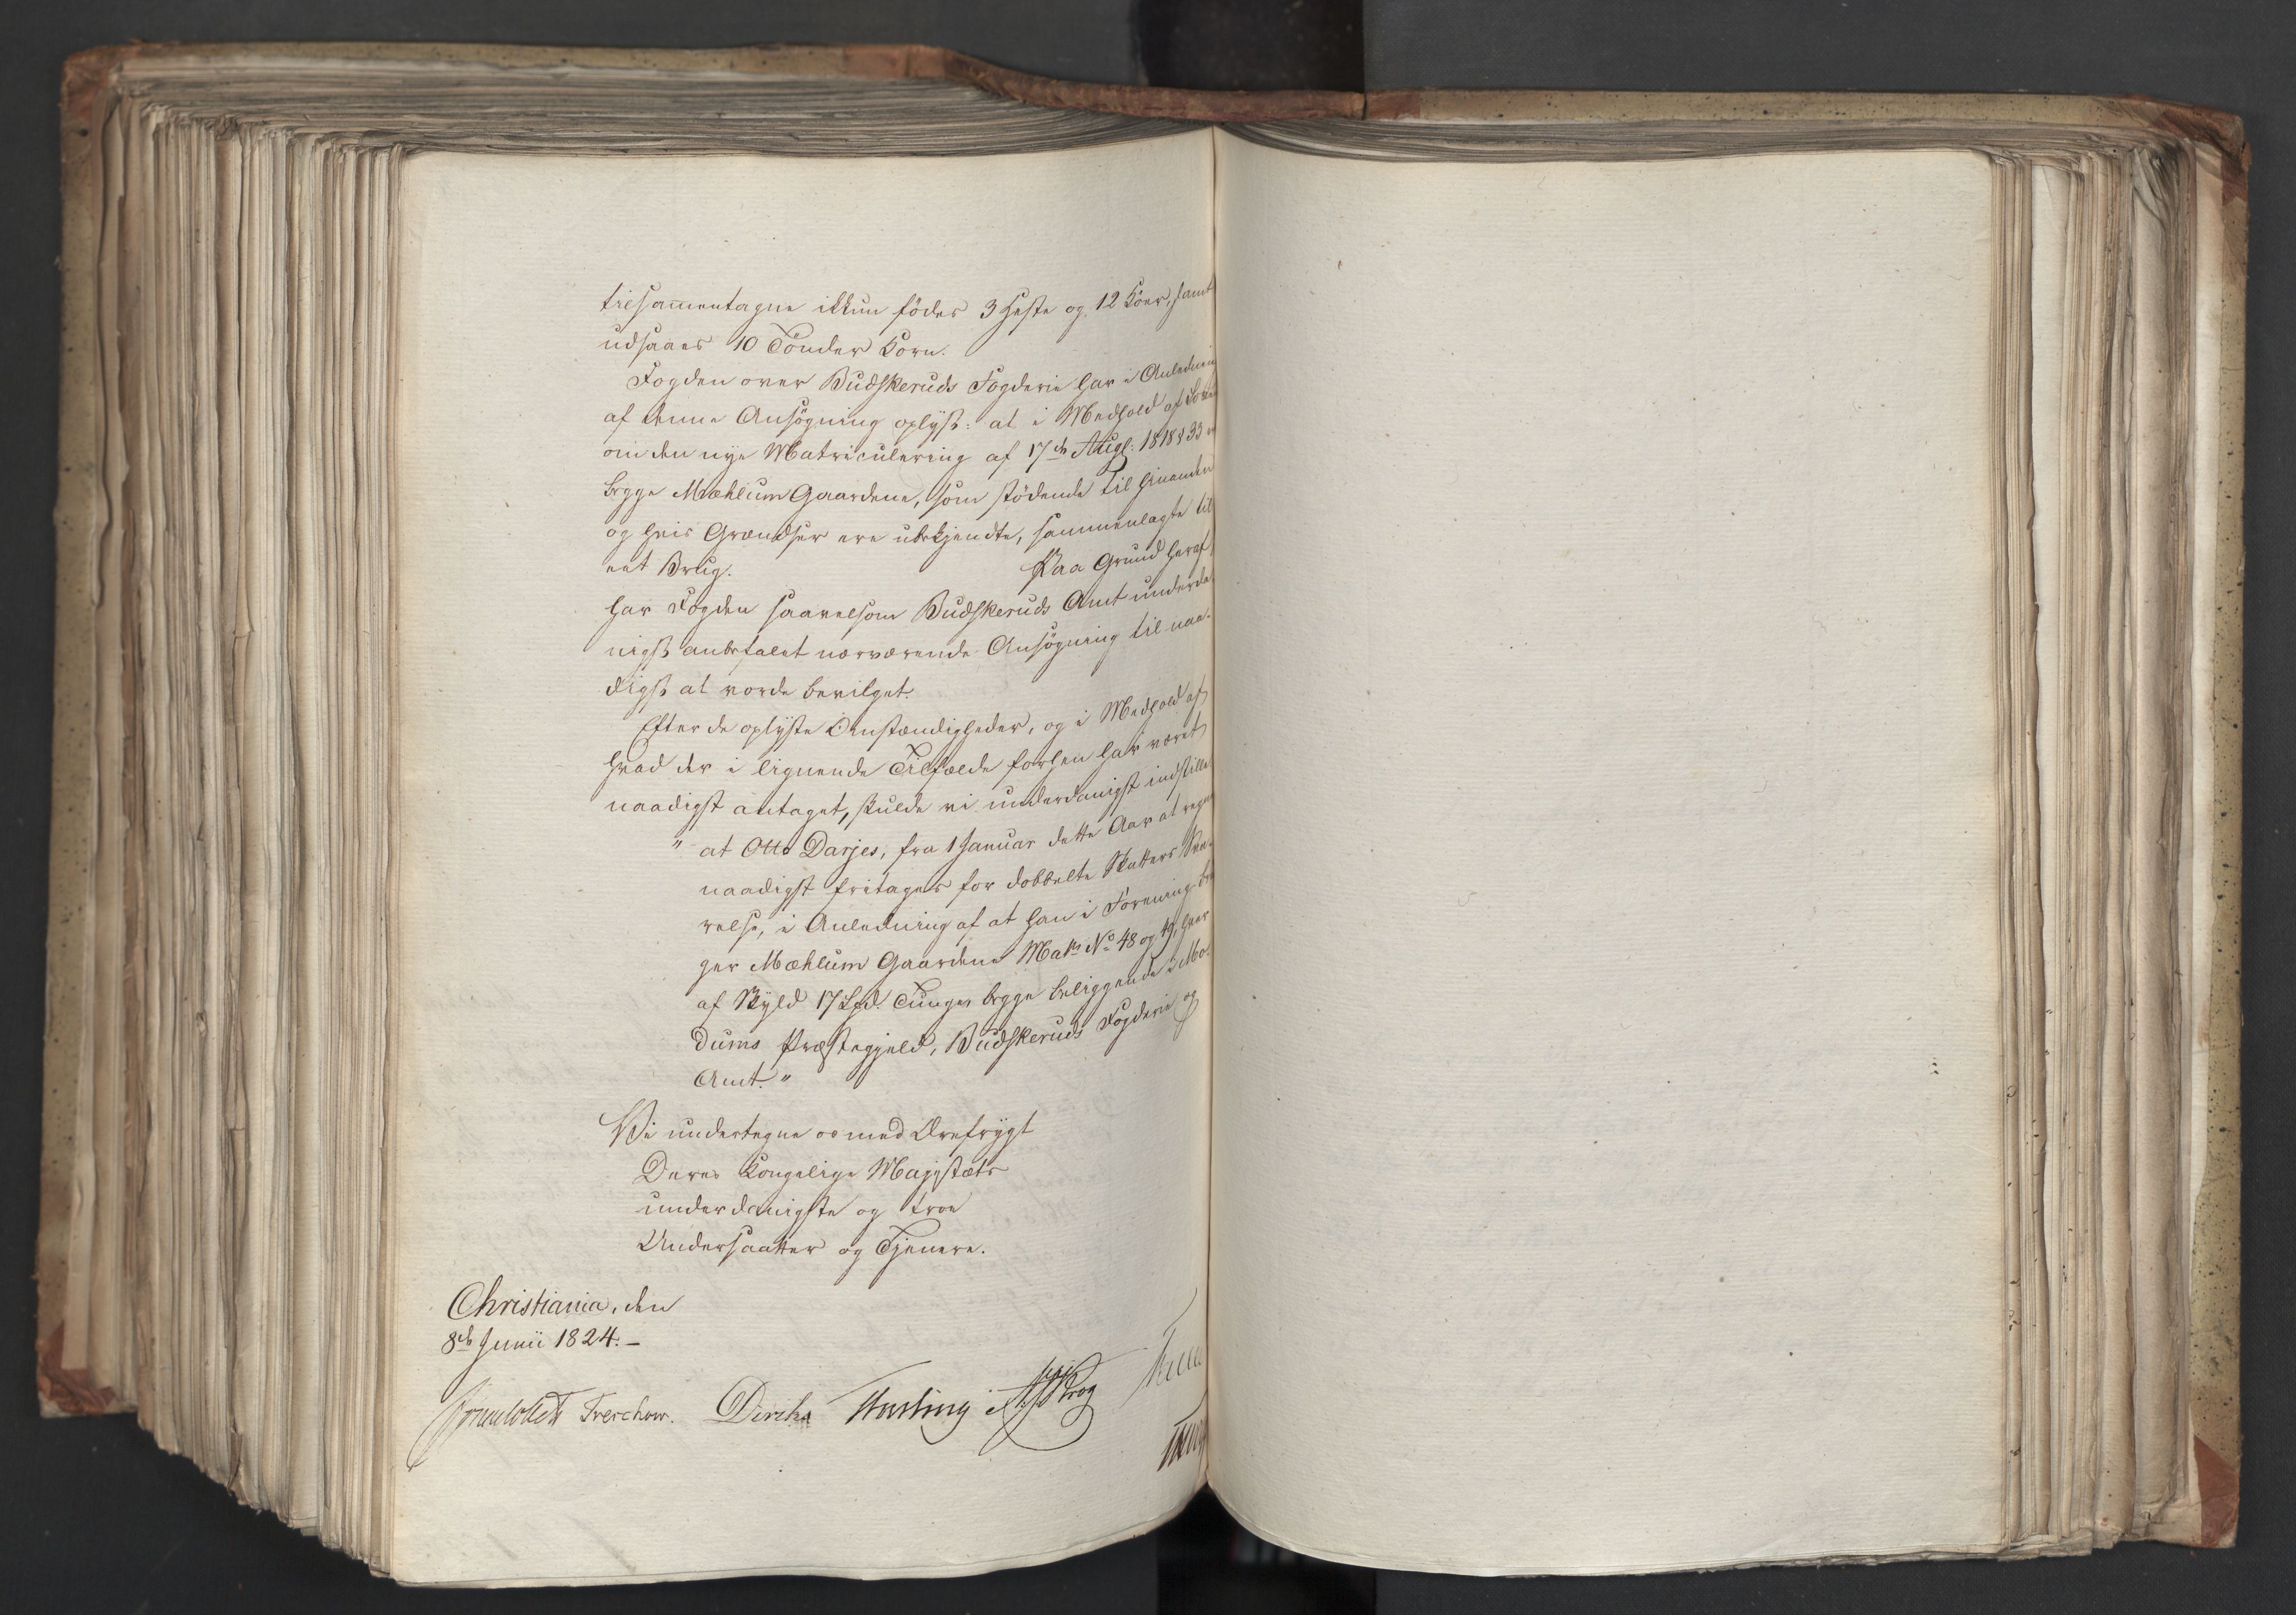 tilsam̄entagne ikkun födes 3 Heste og 12 Köer, samt
udsaaes 10 Tönder Korn.
Fogden over Budskeruds Fogderie har i Anledning
af denne Ansögning oplyst: at i Medhold af Loven
om den nye Matriculering af 17de Augt: 1818 § 33 er
begge Mæhlum Gaardene, som stödende til hinanden
og hvis Grændser ere ubekjendte, sammenlagte til
eet Brug. Paa Grund heraf
har Fogden saavelsom Budskeruds Amt underda-
nigst anbefalet nærværende Ansögning til naa-
digst at vorde bevilget.
Efter de oplyste Omstændigheder, og i Medhold af
hvad der i lignende Tilfælde forhen har været
naadigst antaget, skulde vi underdanigst indstille
" at Otto Darjes, fra 1 Januar dette Aar at regne
naadigst fritages for dobbelte Skatters Sva-
relse, i Anledning af at han i Forening bru
ger Mæhlum Gaardene Matr. No 48 og 49, hver
af Skyld 17 Lpd. Tunge begge beliggende i Mo-
dums Præstegjeld, Budskeruds Fogderie og
Amt."
Vi undertegne os med Ærefrygt
Deres Kongelige Majestæts
underdanigste og troe
Undersaatter og Tjenere.
Christiania, den
8de Junii 1824.-
Treschow. Diriks Krog